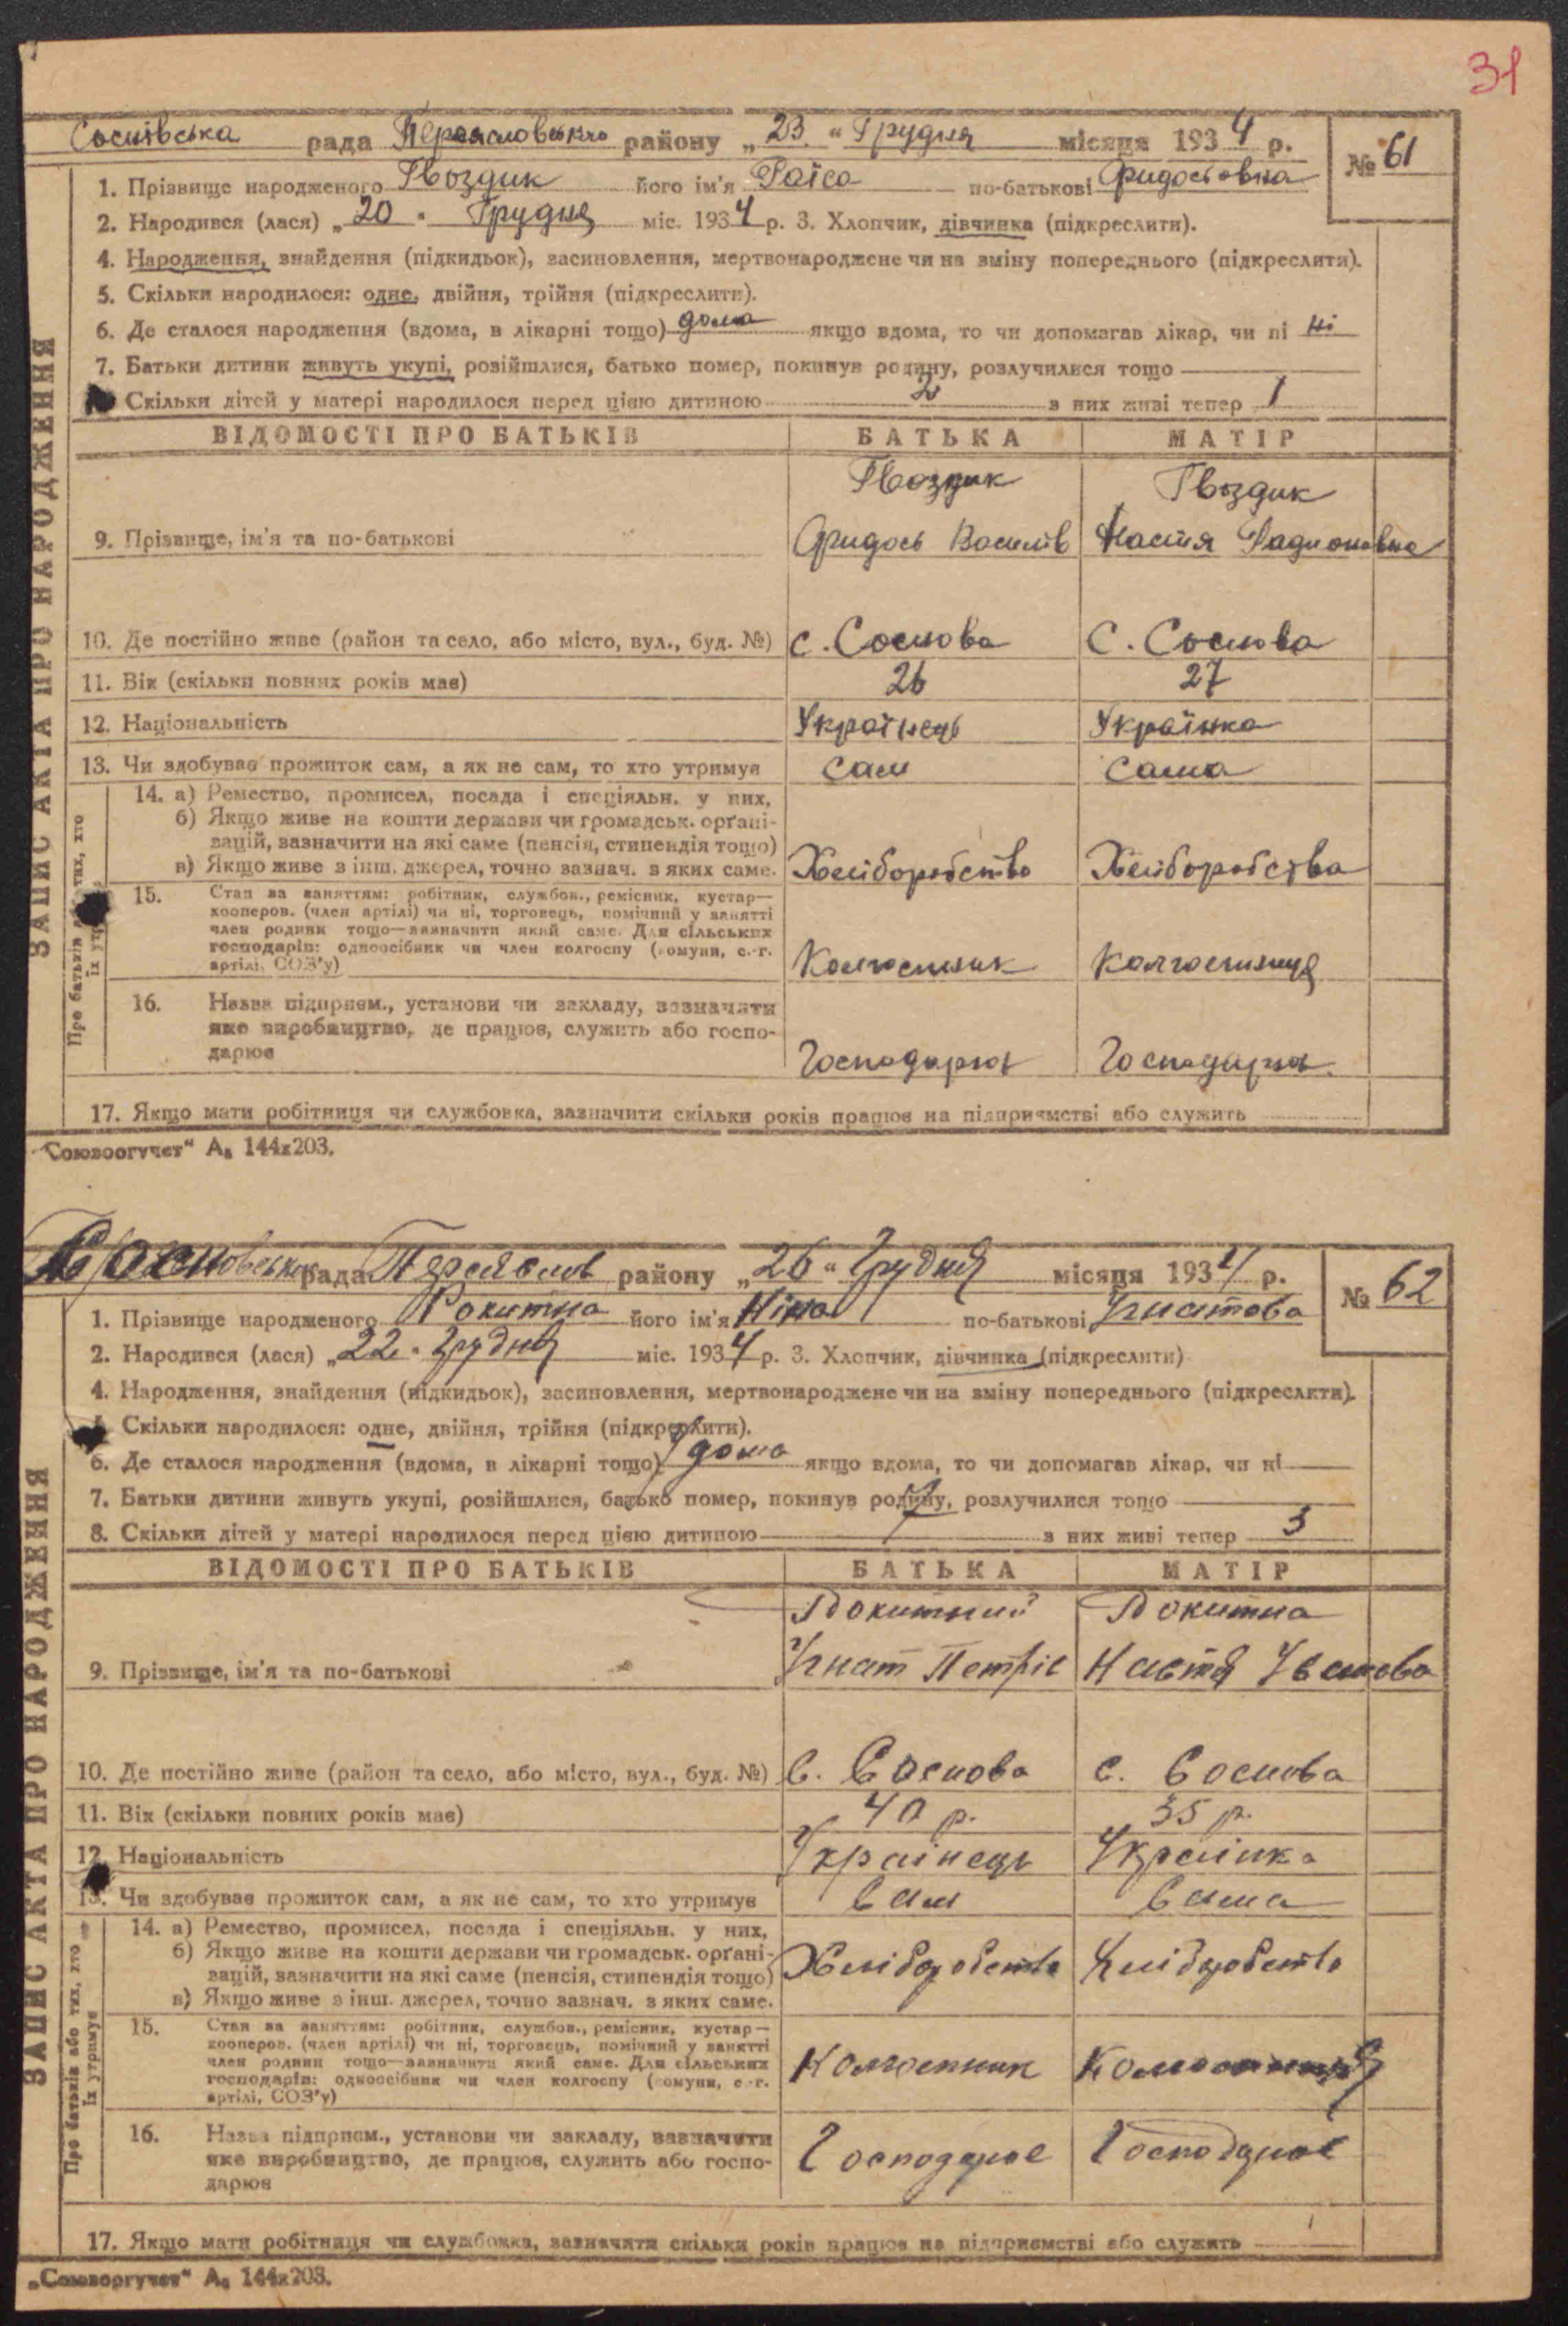 31
Соснівська рада Переяславського району „23“ Грудня місяця 1934 р. № 61
1. Прізвище народженого Гвоздик його ім'я Раїса по-батькові Фидосьовна
2. Народився (лася) „20“ Грудня міс. 1934 р. 3. Хлопчик, дівчинка (підкреслити).
4. Народження, знайдення (підкидьок), засиновлення, мертвонароджене чи на зміну попереднього (підкреслити).
5. Скільки народилося: одне, двійня, трійня (підкреслити).
6. Де сталося народження (вдома, в лікарні тощо) дома якщо вдома, то чи допомагав лікар, чи ні ні
7. Батьки дитини живуть укупі, розійшлися, батько помер, покинув родину, розлучилися тощо
Скільки дітей у матері народилося перед цією дитиною 2 з них живі тепер 1
ЗАПИС АКТА ПРО НАРОДЖЕННЯ
ВІДОМОСТІ ПРО БАТЬКІВ БАТЬКА МАТІР
Гвоздик Гвоздик
9. Прізвище, ім'я та по-батькові Фидось Василів Настя Радионовна
10. Де постійно живе (район та село, або місто, вул., буд. №) с. Соснова С. Соснова
11. Вік (скільки повних років має) 26 27
12. Національність Українець Українка
13. Чи здобуває прожиток сам, а як не сам, то хто утримує сам сама
14. а) Ремество, промисел, посада і спеціяльн. у них,
б) Якщо живе на кошти держави чи громадськ. орґані-
зацій, зазначити на які саме (пенсія, стипендія тощо)
в) Якщо живе з інш. джерел, точно зазнач. з яких саме. Хліборобство Хліборобства
15. Стан за заняттям: робітник, службов., ремісник, кустар—
кооперов. (член артілі) чи ні, торговець, помічний у занятті
член родини тощо—зазначити який саме. Для сільських
господарів: одноосібник чи член колгоспу (комуни, с.-г.
артілі, СОЗ'у) Колгоспник Колгоспниця
16. Назва підприєм., установи чи закладу, зазначити
яке виробництво, де працює, служить або госпо-
дарює Господарює Господарює
17. Якщо мати робітниця чи службовка, зазначити скільки років працює на підприємстві або служить
„Союзоргучет“ А₅ 144х203.
рада Переяслов району „26“ Грудня місяця 1934 р. № 62
1. Прізвище народженого Рокитна його ім'я Ніна по-батькові Гнатова
2. Народився (лася) „22“ Грудня міс. 1934 р. 3. Хлопчик, дівчинка (підкреслити)
4. Народження, знайдення (підкидьок), засиновлення, мертвонароджене чи на зміну попереднього (підкреслити).
Скільки народилося: одне, двійня, трійня (підкреслити).
6. Де сталося народження (вдома, в лікарні тощо) дома якщо вдома, то чи допомагав лікар, чи ні
7. Батьки дитини живуть укупі, розійшлися, батько помер, покинув родину, розлучилися тощо
8. Скільки дітей у матері народилося перед цією дитиною 7 з них живі тепер 3
ЗАПИС АКТА ПРО НАРОДЖЕННЯ
ВІДОМОСТІ ПРО БАТЬКІВ БАТЬКА МАТІР
Рокитний Рокитна
9. Прізвище, ім'я та по-батькові Гнат Петрів Настя Іванова
10. Де постійно живе (район та село, або місто, вул., буд. №) С. Соснова с. Соснова
11. Вік (скільки повних років має) 40 р. 35 р.
12. Національність Українець Українка
13. Чи здобуває прожиток сам, а як не сам, то хто утримує Сам Сама
14. а) Ремество, промисел, посада і спеціяльн. у них,
б) Якщо живе на кошти держави чи громадськ. орґані-
зацій, зазначити на які саме (пенсія, стипендія тощо) Хліборобство Хліборобство
в) Якщо живе з інш. джерел, точно зазнач. з яких саме.
Про батьків або тих, хто їх утримує
15. Стан за заняттям: робітник, службов., ремісник, кустар—
кооперов. (член артілі) чи ні, торговець, помічний у занятті
член родини тощо—зазначити який саме. Для сільських
господарів: одноосібник чи член колгоспу (комуни, с.-г.
артілі, СОЗ'у) Колгоспник Колгоспниця
16. Назва підприєм., установи чи закладу, зазначити
яке виробництво, де працює, служить або госпо-
дарює Господарює Господарює
17. Якщо мати робітниця чи службовка, зазначити скільки років працює на підприємстві або служить
„Союзоргучет“ А₅ 144х203.